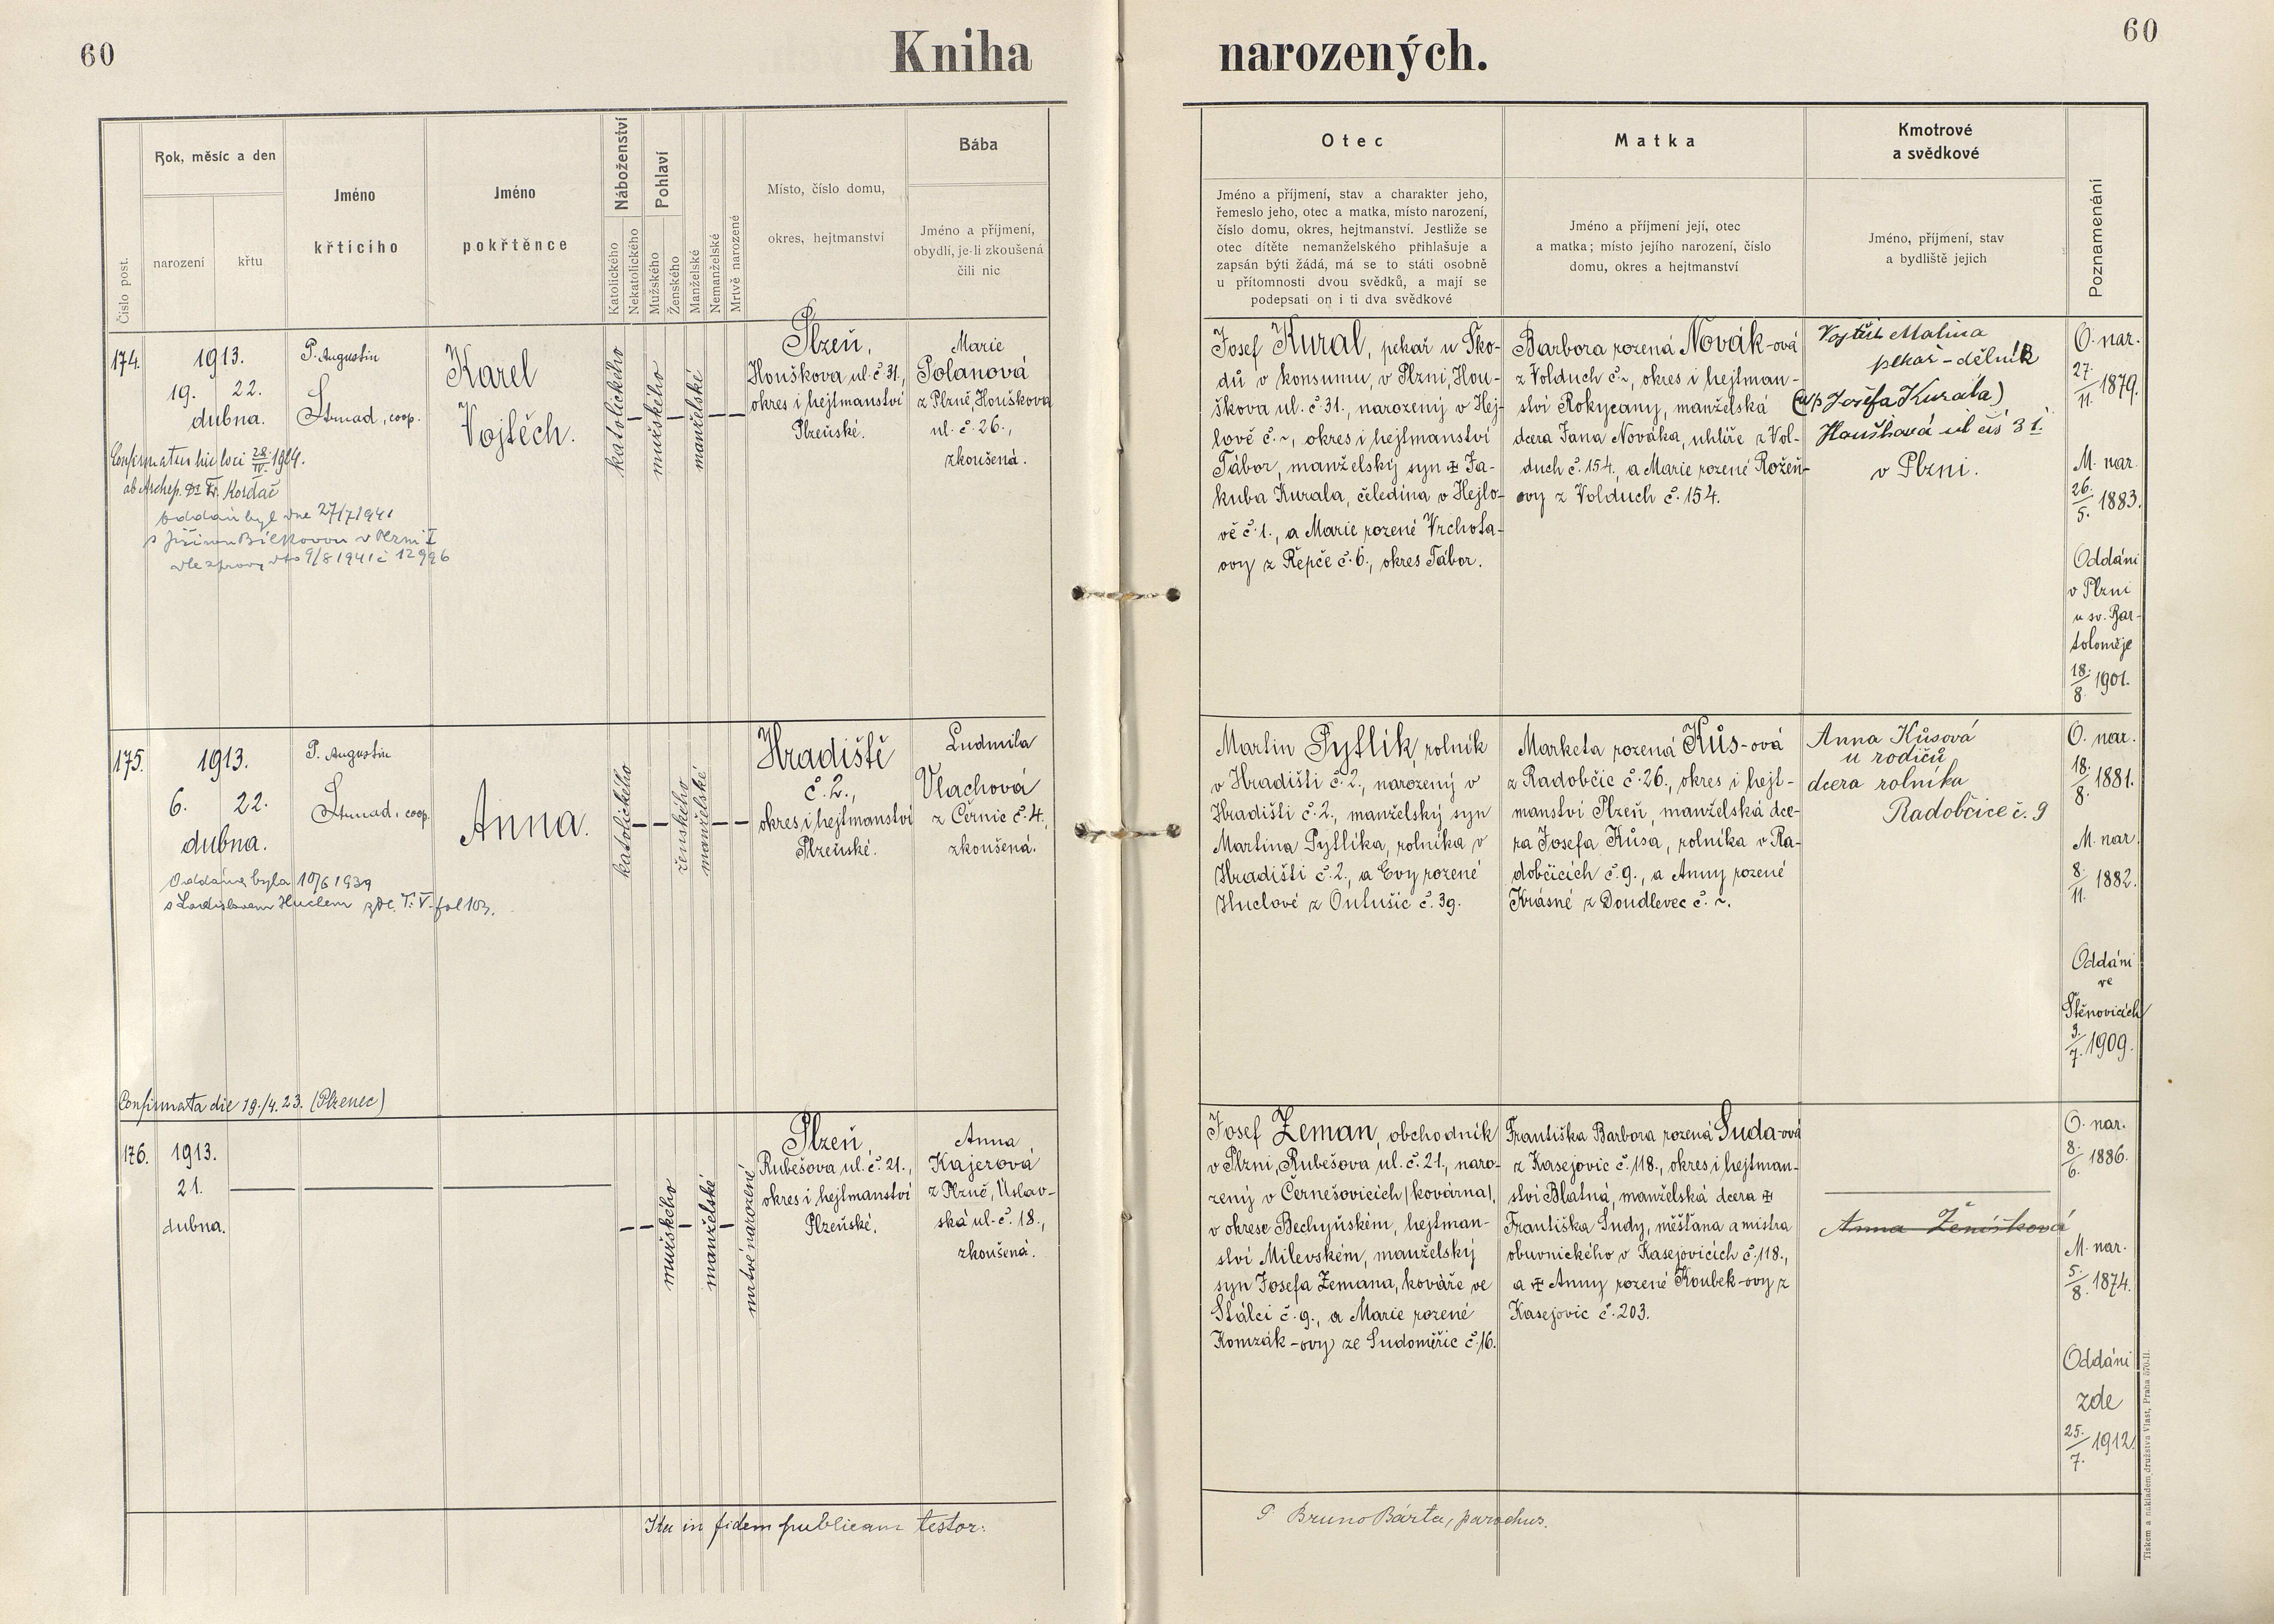 60
Kniha
narozených.
60
Číslo post.
Rok, měsíc a den
narození
křtu
Jméno
křtícího
Jméno
pokřtěnce
Náboženství
Katolického
Nekatolického
Pohlaví
Mužského
Ženského
Manželské
Nemanželské
Mrtvě narozené
Místo, číslo domu,
okres, hejtmanství
Bába
Jméno a příjmení,
obydlí, je-li zkoušená
čili nic
Otec
Jméno a příjmení, stav a charakter jeho,
řemeslo jeho, otec a matka, místo narození,
číslo domu, okres, hejtmanství. Jestliže se
otec dítěte nemanželského přihlašuje a
zapsán býti žádá, má se to státi osobně
u přítomnosti dvou svědků, a mají se
podepsati on i ti dva svědkové
Matka
Jméno a příjmení její, otec
a matka; místo jejího narození, číslo
domu, okres a hejtmanství
Kmotrové
a svědkové
Jméno, příjmení, stav
a bydliště jejich
Poznamenání
174.
1913.
19. 22.
dubna.
P. Augustin
Strnad, coop.
Karel
Vojtěch.
katolického
mužského
manželské
Plzeň,
Houškova ul. č. 31.,
okres i hejtmanství
Plzeňské.
Marie
Polanová
z Plzně, Houškova
ul. č. 26.,
zkoušená.
Confirmatus hic loci 28./IV. 1924.
ab Archep. Dr Fr. Kordač
Oddán byl dne 27/7 1941
s Jiřinou Bílkovou v Plzni I
dle zprávy dto 9/8 1941 č 12996
Josef Kural, pekař u Ško-
dů v konsumu, v Plzni, Hou-
škova ul. č. 31., narozený v Hej-
lově č. ~, okres i hejtmanství
Tábor, manželský syn ✠ Ja-
kuba Kurala, čeledína v Hejlo-
vě č. 1., a Marie rozené Vrchota-
ovy z Řepče č. 6., okres Tábor.
Barbora rozená Novák-ová
z Volduch č. ~, okres i hejtman-
ství Rokycany, manželská
dcera Jana Nováka, uhlíře z Vol-
duch č. 154., a Marie rozené Rožeň-
ovy z Volduch č. 154.
Vojtěch Malina
pekař-dělník
(u p Josefa Kurala)
Houšková ul čís 31.
v Plzni.
O. nar.
27./11. 1879.
M. nar.
26./5. 1883.
Oddáni
v Plzni
u sv. Bar-
toloměje
18./8. 1901.
175.
1913.
6. 22.
dubna.
P. Augustin
Strnad, coop.
Anna.
katolického
ženského
manželské
Hradiště
č. 2.,
okres i hejtmanství
Plzeňské.
Ludmila
Vlachová
z Černic č. 4.,
zkoušená.
Oddána byla 10/6 1939
s Ladislavem Huclem zde. T. V. fol 103.
Confirmata die 19./4. 23. (Plzenec)
Martin Pytlík, rolník
v Hradišti č. 2., narozený v
Hradišti č. 2., manželský syn
Martina Pytlíka, rolníka v
Hradišti č. 2., a Evy rozené
Huclové z Outušic č. 39.
Marketa rozená Kůs-ová
z Radobčic č. 26., okres i hejt-
manství Plzeň, manželská dce-
ra Josefa Kůsa, rolníka v Ra-
dobčicích č. 9., a Anny rozené
Krásné z Doudlevec č. ~.
Anna Kůsová
u rodičů
dcera rolníka
Radobčice č. 9
O. nar.
18./8. 1881.
M. nar.
8./11. 1882.
Oddáni
ve
Štěnovicích
3./7. 1909.
176.
1913.
21.
dubna.
mužského
manželské
mrtvě narozené
Plzeň,
Rubešova ul. č. 21.,
okres i hejtmanství
Plzeňské.
Anna
Kajerová
z Plzně, Úslav-
ská ul. č. 18.,
zkoušená.
Josef Zeman, obchodník
v Plzni, Rubešova ul. č. 21., naro-
zený v Černešovicích (kovárna),
v okrese Bechyňském, hejtman-
ství Milevském, manželský
syn Josefa Zemana, kováře ve
Stálci č. 9., a Marie rozené
Komzák-ovy ze Sudoměřic č. 16.
Františka Barbora rozená Suda-ová
z Kasejovic č. 118., okres i hejtman-
ství Blatná, manželská dcera ✠
Františka Sudy, měšťana a mistra
obuvnického v Kasejovicích č. 118.,
a ✠ Anny rozené Koubek-ovy z
Kasejovic č. 203.
Anna Ženíšková
O. nar.
8./6. 1886.
M. nar.
5./8. 1874.
Oddáni
zde
25./7. 1912.
Ita in fidem publicam testor:
P. Bruno Bárta, parochus.
Tiskem a nákladem družstva Vlast, Praha 570-II.